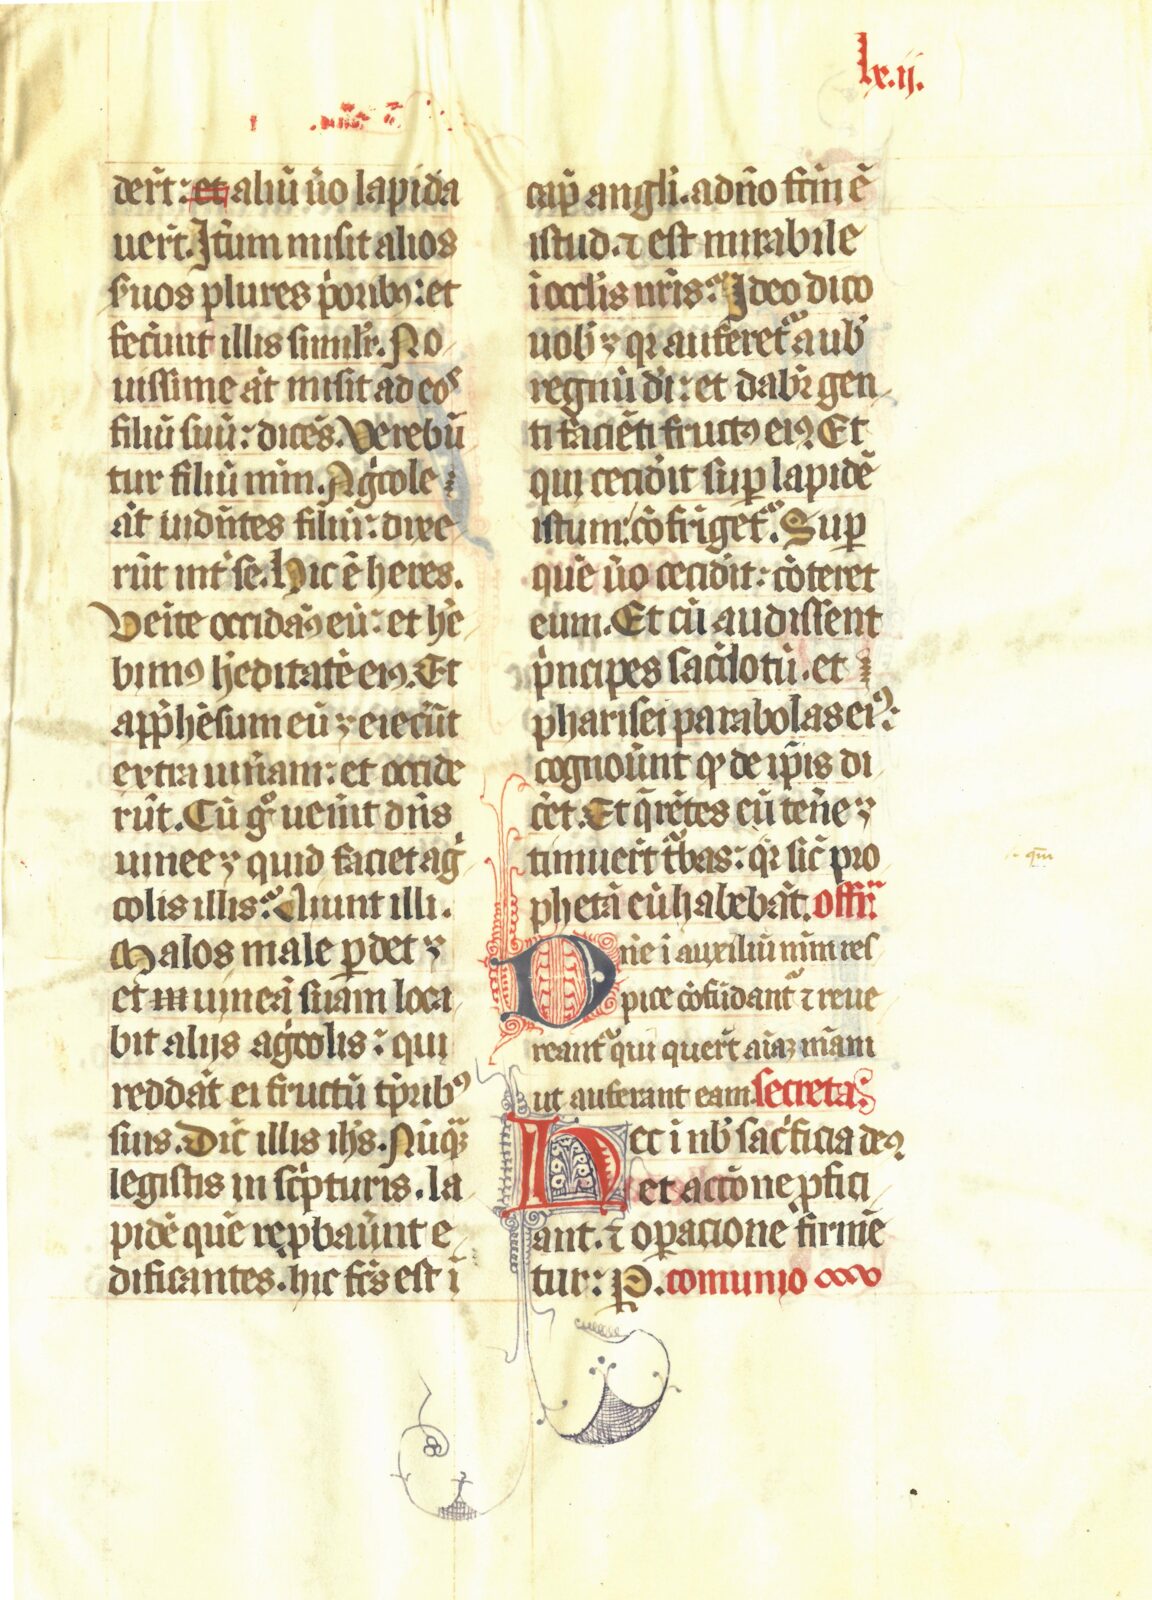 lx.ij.
der̄t: et aliū ūo lapida
uer̄t. Itūm misit alios
suos plures p̓oribꝰ: et
fec̓unt illis simil̓r. No
uissime āt misit ad eos
filiū suū: dicēs. Verebū
tur filiū mm̄. Ag̓cole
āt uidn̄tes filiū: dixe
rūt int̓ se. Hic ē heres.
Veīte occidamꝰ eū: et hē
bimꝰ h̓editatē eiꝰ. Et
app̄hēsum eū ⁊ eiecūt
extra uīnam: et occide
rūt. Cū gͦ uen̓it dn̄s
uinee ⁊ quid faciet ag̓
colis illis. Aiunt illi.
Malos male ꝑdet ⁊
et uineā suam loca
bit alijs ag̓colis: qui
reddāt ei fructū tp̄ribꝰ
suis. Dic̄ illis ih̄s. Nūqͣꝫ
legistis in sc̓pturis. la
pidē quē rep̱baūnt e
dificantes. hic fc̄s est ī
cap̄ angl̓i. a dn̄o fc̄m ē
istud. ⁊ est mirabile
ī occl̓is nr̄is. Ideo dico
uob̓ ⁊ qr̓ auferetᷣ a ub̓
regnū di̓: et dab̓r gen
ti faciēti fructꝰ eiꝰ. Et
qui cecid̓it sup̱ lapidē
istum: cōfrigetᷣ. Sup̱
quē ūo cecid̓it: cōteret
eum. Et cū audissent
p̓ncipes sac̓dotū. et
pharisei parabolas eiꝰ:
cognoūnt qͥ de ip̄is di
c̄et. Et q̄rētes eū ten̄e ⁊
timuer̄t t̓bas: qr̓ sic̄ pro
phetā eū habebāt. offr̄
Dn̄e ī auxiliū mm̄ res
pice cōfūdantᷣ ⁊ reue
reantᷣ qui quer̄t aīaꝫ m̄am
ut auferant eam. secreta
Hec ī nb̓ sac̓ficia deꝰ
et acc̄one ꝓfici
ant. ⁊ oꝑacione firmē
tur: P̱. comunio